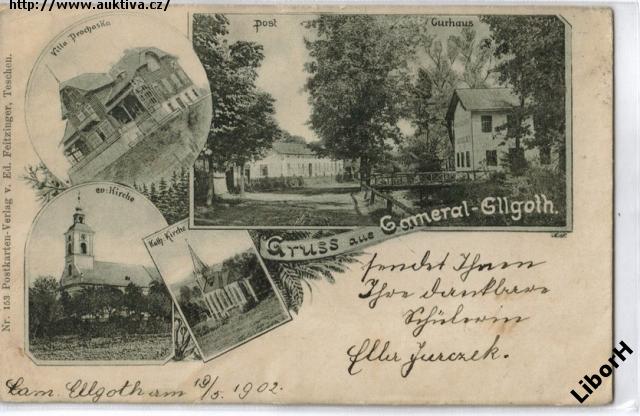 http://www.auktiva.cz/
Villa Prochaska
Post
Curhaus
ev: Kirche
Kath. Kirche
Gruss aus Cameral-Ellgoth.
Nr. 153 Postkarten-Verlag v. Ed. Feitzinger, Teschen.
sendet Ihnen
Ihre dankbare
Schülerin
Ella Jurczek.
Cam. Ellgoth am 19/5. 1902.
LiborH